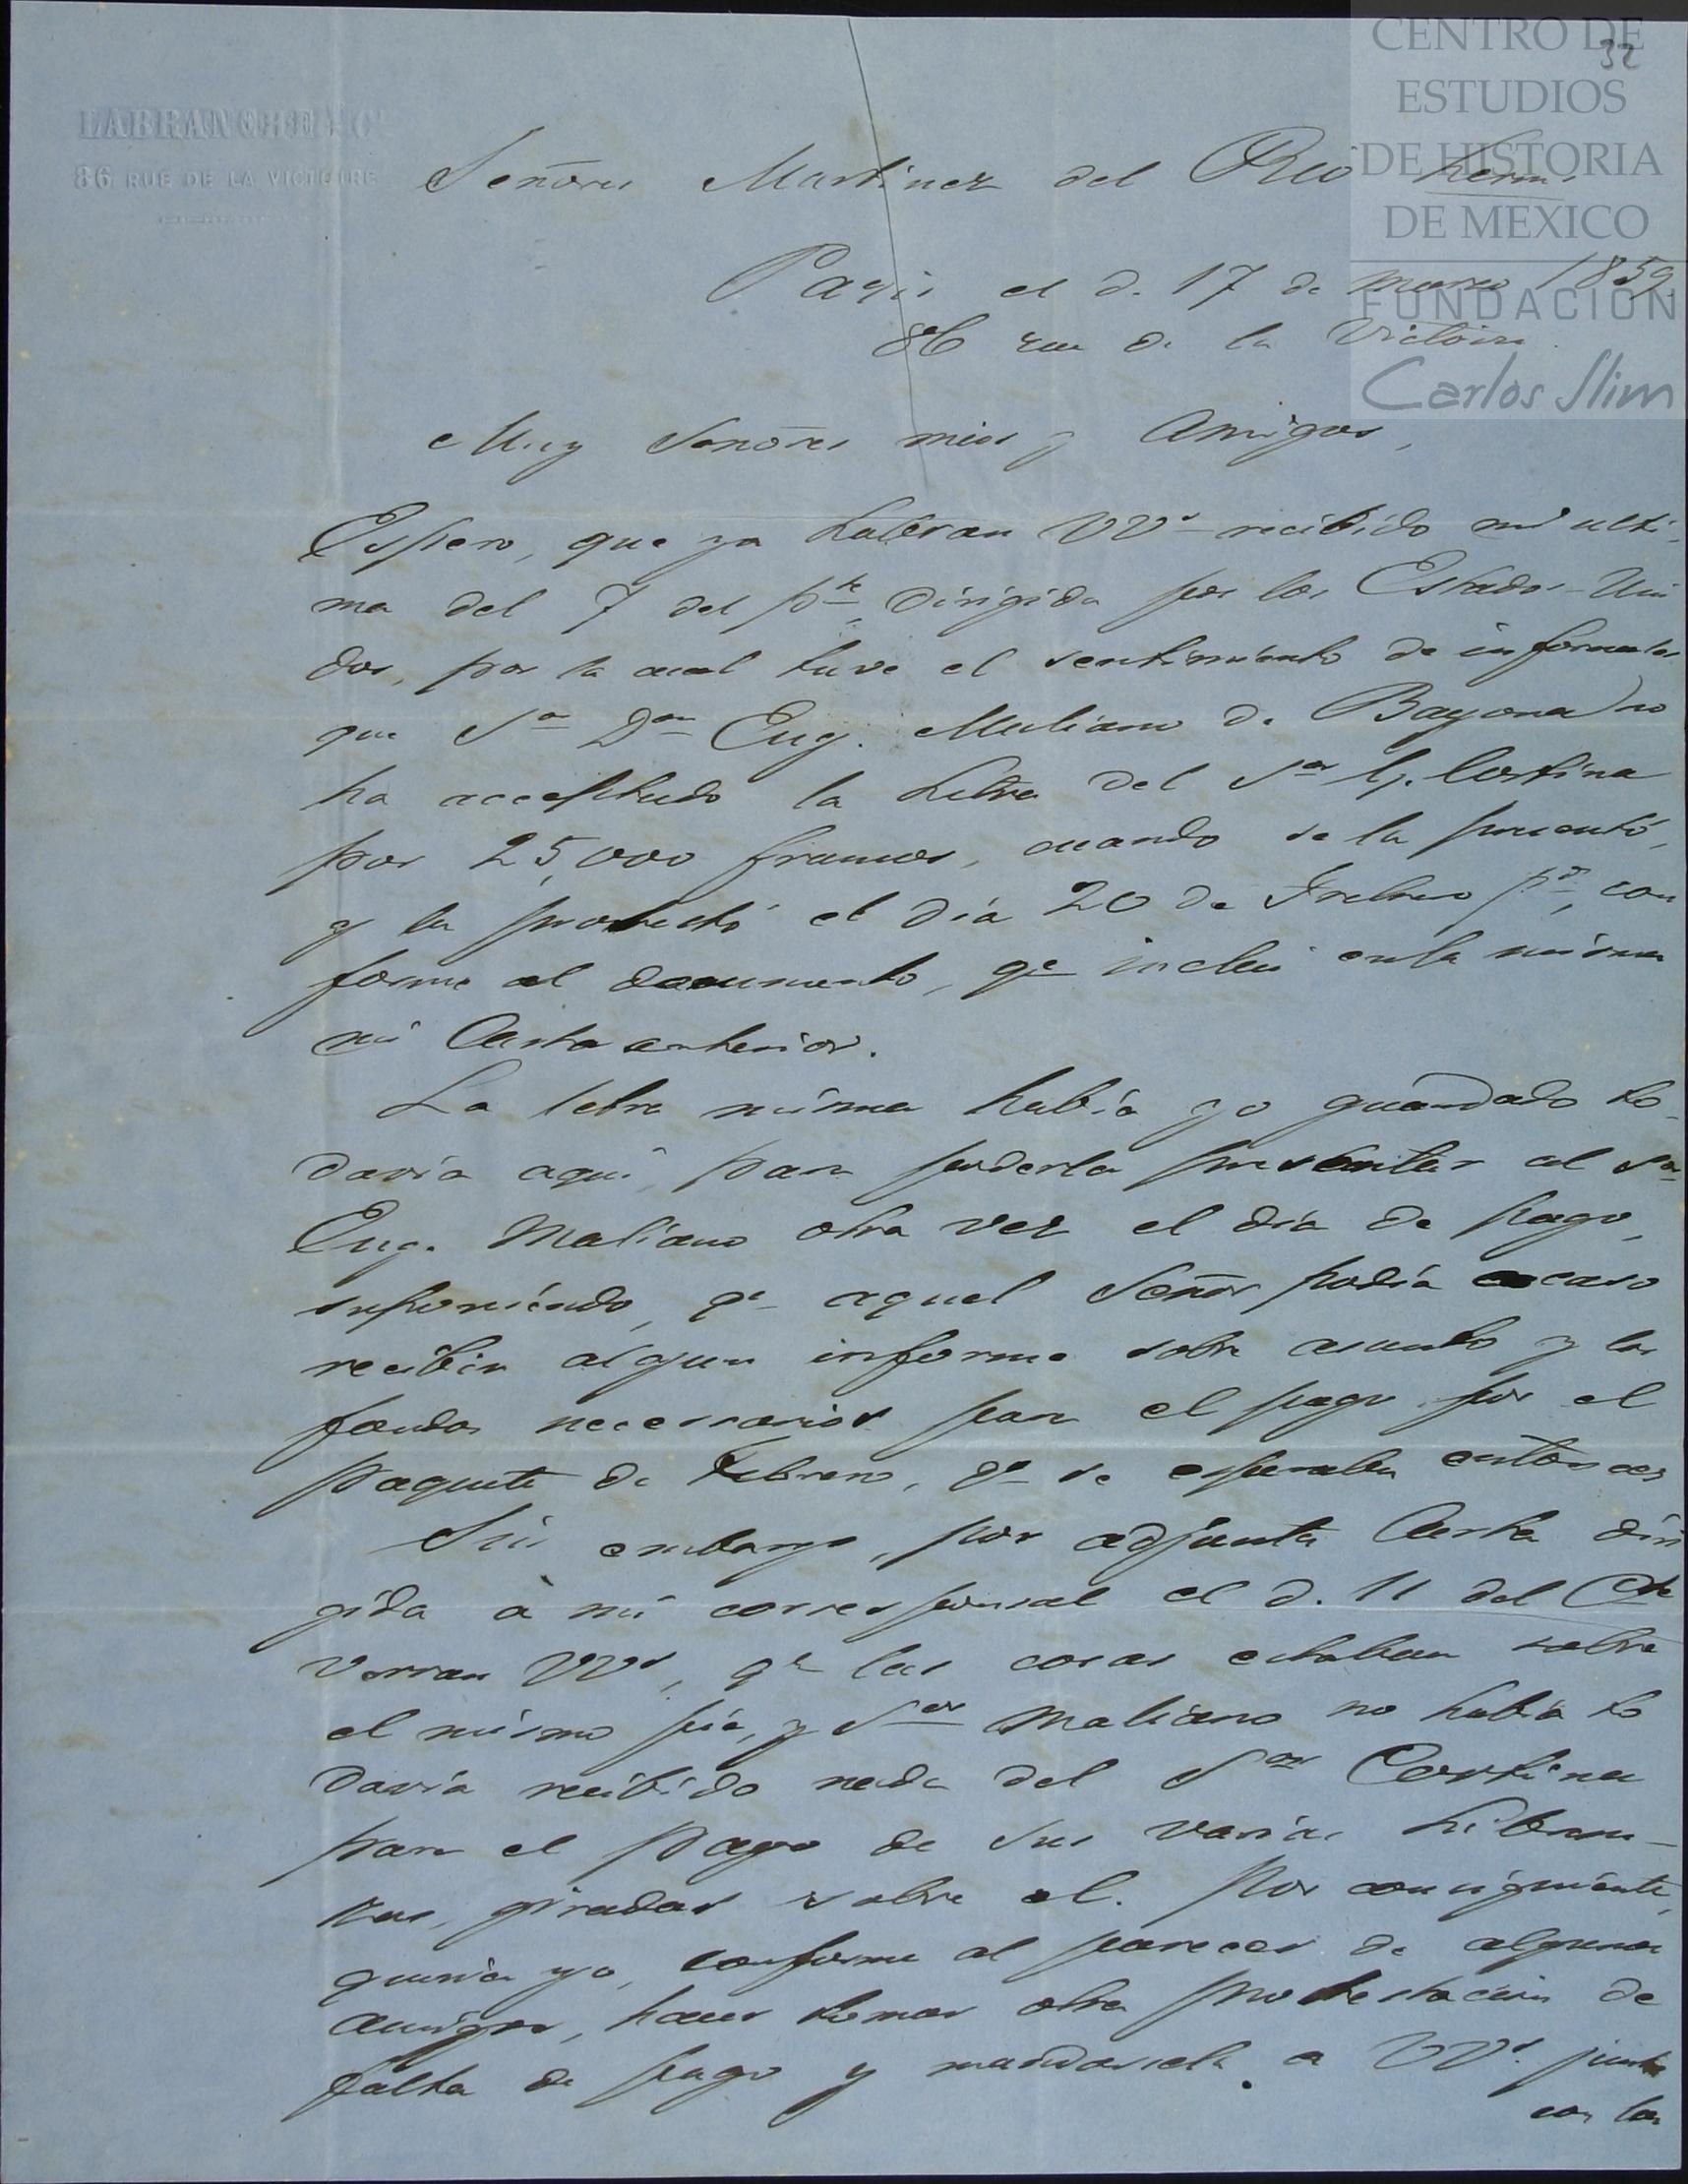 CENTRO DE
ESTUDIOS
DE HISTORIA
DE MEXICO
FUNDACION
Carlos Slim
32
LABRANCHE & Cie
86 RUE DE LA VICTOIRE
Señores Martinez del Rio herms
Paris el d. 17 de marzo 1859.
86 rue de la Victoire.
Muy Senōres mios y Amigos,
Espero, que ya habran VVs recibido mi ulti-
ma del 7 del pte, dirigida por los Estados-Uni
dos, por la cual tuve el sentimiento de informarles
que Sor Don Eug. Maliano de Bayona no
ha acceptado la Letra del Sor Cortina
por 25,000 francos, cuando se la presentó,
y la protestó el día 20 de Frebrero po, con
forme al documento, qe inclui en la misma
mi Carta anterior.
La letra misma había yo guardado to-
davía aquí, para poderla presentar al Sor
Eug. Maliano otra vez el día de pago,
suponiendo, qe aquel Señor podía acaso
recibir algun informe sobre asunto y los
fondos necessarios para el pago por el
paquete de Febrero, qe se esperaba entonces
Sin embargo, por adjunta Carta diri
gida à mi corresponsal el d. 11 del Cte
verran VVs, qe las cosas estaban sobre
el mismo pié, y Sor Maliano no había to
davía recibido nada del Sor Cortina
para el pago de sus varias Libran-
zas, giradas sobre el. Por consiguiente,
queria yo, conforme al parecer de algunos
amigos, hacer tomar otra protestacion de
falta de pago y mandarsela a VVs. junta
con la